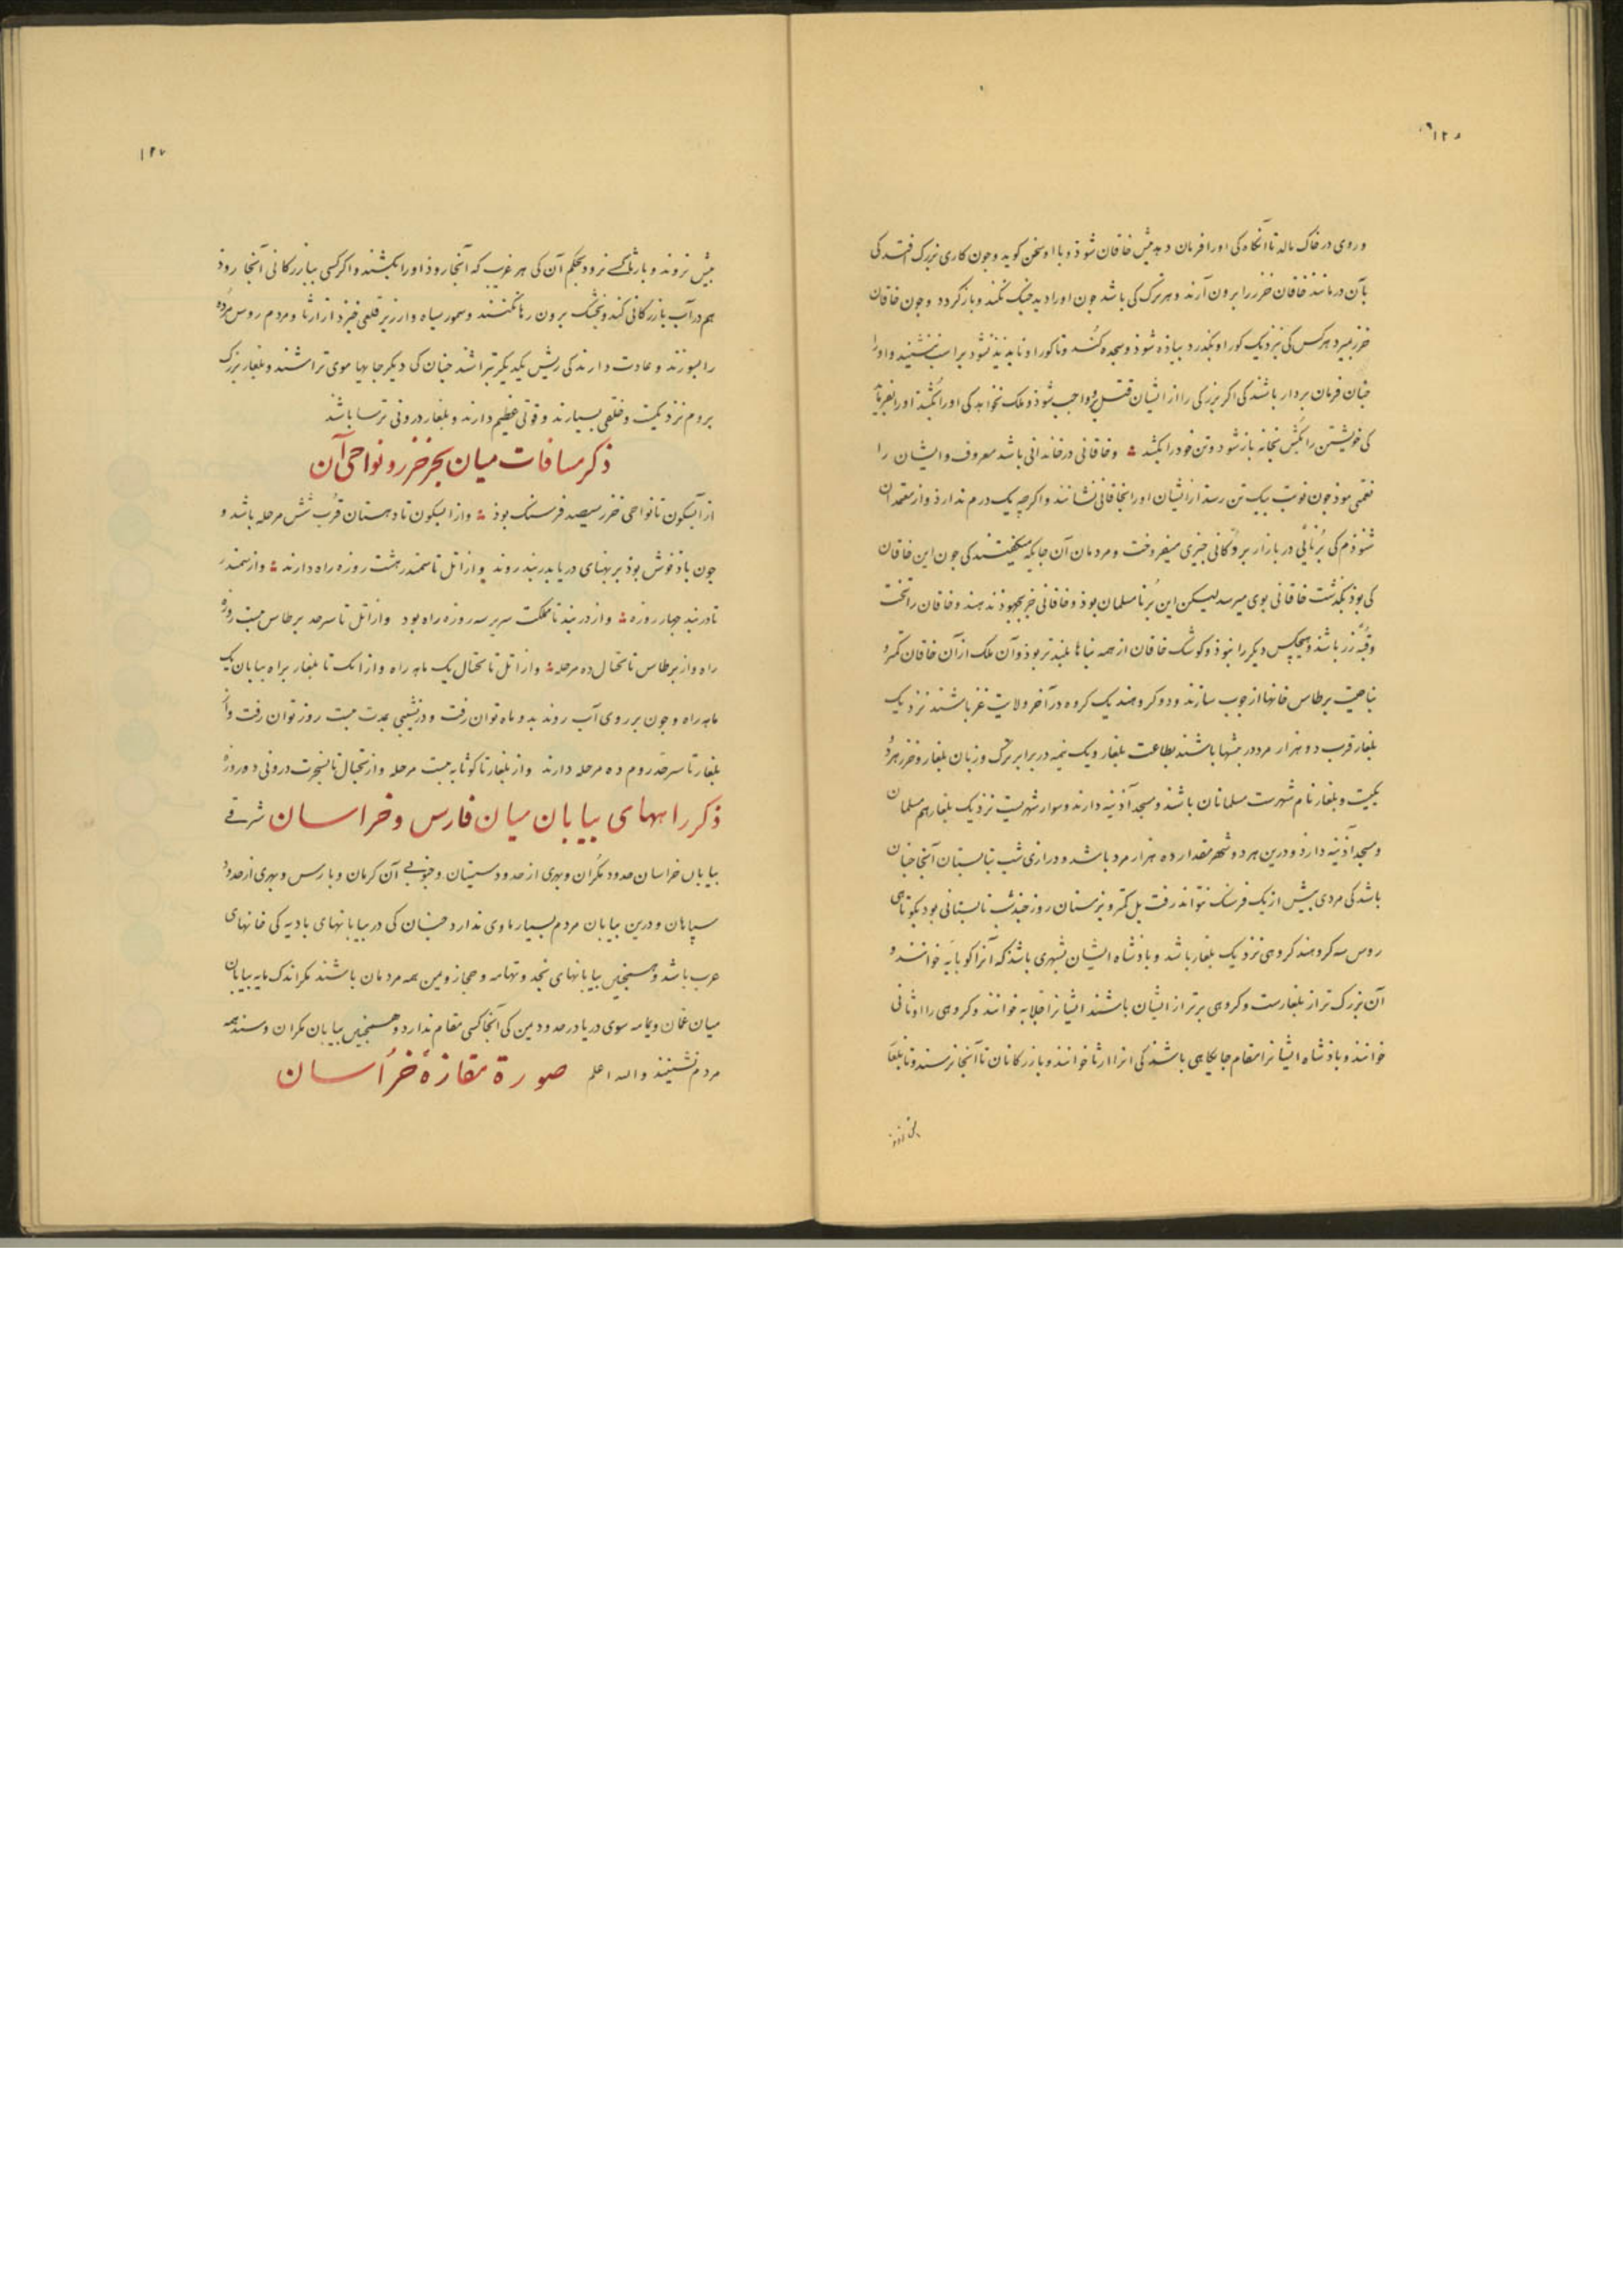 وروی در خاک مالد تا آنگاه کی اورا فرمان دهد پیش خاقان شوذ و با او سخن کوید وجون کاری بزرک افتد کی
بآن درمانند خاقان خزر را برون آرند وهر ترک کی باشد جون اورا دید جنک نکند وباز کردد وجون خاقان
خزر بمیرد هرکس کی بنزدیک کور او بکذرد پیاذه شوذ وسجده کند وتا کور او نابدید نشود بر اسب ننشیند واورا
جنان فرمان بردار باشند کی اکر بزرکی را از ایشان قتل واجب شوذ وملک نخواهد کی اورا بکشد اورا بفرماید
کی خویشتن را بکش بخانه باز شود وتن خود را بکشد وخاقانی در خاندانی باشد معروف وایشان را
نعمتی بوذ جون نوبت بیک تن رسد از ایشان اورا بخاقانی نشانند واکرجه یک درم ندارذ واز معتمدان
شنوذم کی برنائی در بازار بر دکانی جیزی میفروخت ومردمان آن جایکه میکفتند کی جون این خاقان
کی بوذ بکذشت خاقانی بوی میرسد لیکن این برنا مسلمان بوذ وخاقانی جز بجهوذ ندهند وخاقان را تخت
وقبه زر باشد وهیجکس دیکر را نبوذ وکوشک خاقان از همه بناها بلندتر بوذ وآن ملک از آن خاقان کمتر و
بناحیت برطاس خانها از جوب سازند ودو کروهند یک کروه در آخر ولایت غز باشند نزدیک
بلغار قرب دو هزار مرد در بیشها باشند بطاعت بلغار ویک نیمه در برابر ترک وزبان بلغار وخزر هردو
یکیست وبلغار نام شهرست مسلمانان باشند ومسجد آذینه دارند وسوار شهریست نزدیک بلغار هم مسلمان
ومسجد آذینه دارذ ودرین هردو شهر مقدار ده هزار مرد باشد ودرازی شب تابستان آنجا جنان
باشد کی مردی بیش از یک فرسنک نتواند رفت بل کمتر وبزمستان روز جند شب تابستانی بود بکوتاهی
روس سه کروهند کروهی نزدیک بلغار باشد وباذشاه ایشان بشهری باشد که آنرا کوبابه خوانند و
آن بزرک تر از بلغارست وکروهی برتر از ایشان باشند ایشانرا جلابه خوانند وکروهی را اوثانی
خوانند وباذشاه ایشانرا مقام جایکاهی باشد کی انرا ارثا خوانند وبازرکانان تا آنجا نرسند وتا بلغار
بیش نروند وبارثا کسی نرود بحکم آن کی هر غریب که آنجا روذ اورا بکشند واکر کسی ببازرکانی آنجا روذ
هم در آب بازرکانی کند وهیجک برون رها نکنند وسمور سیاه وارزیز قلعی خیزد از ارثا ومردم روس مرده
را بسوزند وعادت دارند کی ریش یکدیکر بتراشند جنان کی دیکر جایها موی تراشند وبلغار بزرک
بروم نزدیکست وخلقی بسیارند وقوتی عظیم دارند وبلغار درونی ترسا باشند
ذکر مسافات میان بحر خزر ونواحی آن
از آبسکون تا نواحی خزر سیصد فرسنک بوذ واز آبسکون تا دهستان قرب شش مرحله باشد و
جون باذ خوش بوذ بر پهنای دریا بدربند روند واز اتل تا سمندر هشت روزه راه دارند واز سمندر
تا دربند جهار روزه واز دربند تا مملکت سریر سه روزه راه بود واز اتل تا سرحد برطاس بیست روزه
راه واز برطاس تا بخال ده مرحله واز اتل تا بخال یک ماهه راه واز اتک تا بلغار براه بیابان یک
ماهه راه وجون بر روی آب روند بدو ماه توان رفت ودر نشیبی بمدت بیست روز توان رفت واز
بلغار تا سرحد روم ده مرحله دارند واز بلغار تا کوثابه بیست مرحله واز بخبال تا بسجرت درونی ده روزه
ذکر راههای بیابان میان فارس وخراسان شرقی
بیابان خراسان حدود مکران وبهری از حدود سیستان وجنوبی آن کرمان وبارس وبهری از حدود
سپاهان ودرین بیابان مردم بسیار ماوی ندارد جنان کی در بیابانهای بادیه کی خانهای
عرب باشد وهمجنین بیابانهای نجد وتهامه وحجاز ویمن همه مردمان باشند مکر اندک مایه بیابان
میان عمان ویمامه سوی دریا در حدود یمن کی آنجا کسی مقام ندارد وهمجنین بیابان مکران وسند همه
مردم نشینند والله اعلم صورة مفازهٔ خراسان